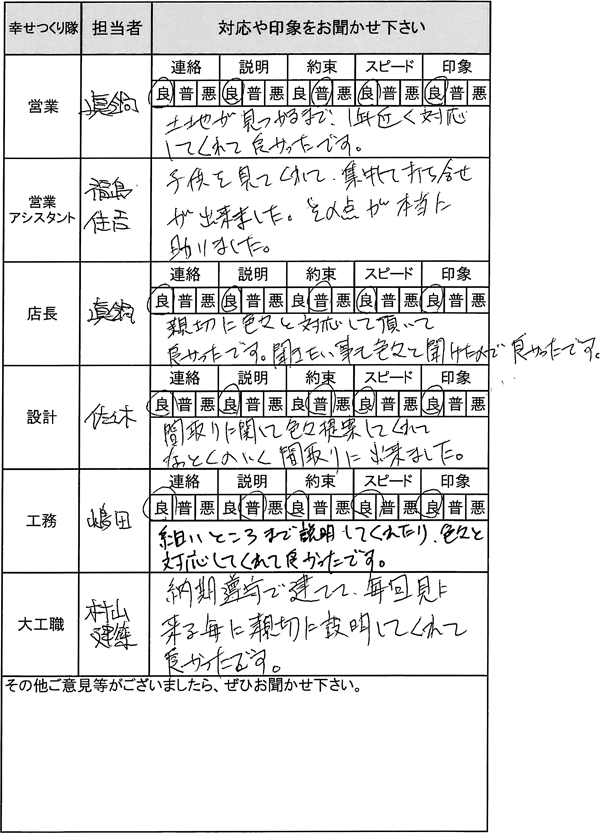 幸せつくり隊 担当者 対応や印象をお聞かせ下さい
営業 眞鍋
連絡 説明 約束 スピード 印象
良 普 悪 良 普 悪 良 普 悪 良 普 悪 良 普 悪
土地が見つかるまで、1年近く対応
してくれて良かったです。
営業
アシスタント
福島
住吉
子供を見てくれて、集中して打ち合せ
が出来ました。その点が本当に
助りました。
店長 眞鍋
連絡 説明 約束 スピード 印象
良 普 悪 良 普 悪 良 普 悪 良 普 悪 良 普 悪
親切に色々と対応して頂いて
良かったです。聞きたい事も色々と聞けたので良かったです。
設計 佐々木
連絡 説明 約束 スピード 印象
良 普 悪 良 普 悪 良 普 悪 良 普 悪 良 普 悪
間取りに関して色々提案してくれて
なっとくのいく間取りに出来ました。
工務 嶋田
連絡 説明 約束 スピード 印象
良 普 悪 良 普 悪 良 普 悪 良 普 悪 良 普 悪
細いところまで説明してくれたり、色々と
対応してくれて良かったです。
大工職
村山
建築
納期遵守で建てて、毎回見に
来る毎に親切に説明してくれて
良かったです。
その他ご意見等がございましたら、ぜひお聞かせ下さい。